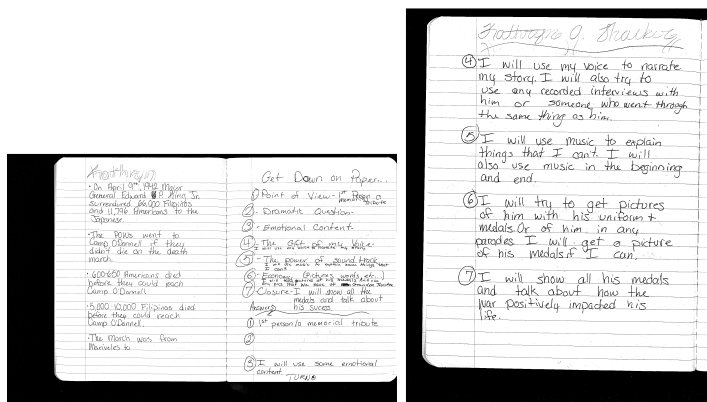 • On April 9th, 1942 Major
General Edward P. King, Jr.
surrendered 66,000 Filipinos
and 11,796 Americans to the
Japanese.
• The POWs went to
Camp O'Donnell if they
didn't die on the death
march.
• 600-650 Americans died
before they could reach
Camp O'Donnell.
• 5,000-10,000 Filipinos died
before they could reach
Camp O'Donnell.
• The March was from
Mariveles to
Get Down on Paper...
① Point of View- 1st Person a
memorial tribute
② - Dramatic Question-
③ - Emotional Content-
④ - The Gift of my Voice-
⑤ - The power of sound track
I can't
⑥ - Economy (Pictures, words etc.)
⑦ Closure- I will show all the
medals and talk about
his sucess.
Answers
① 1st person/a memorial tribute
②
③ I will use some emotional
content.
TURN
④ I will use my voice to narrate
my story. I will also try to
use any recorded interviews with
him or someone who went through
the same thing as him.
⑤ I will use music to explain
things that I can't. I will
also use music in the beginning
and end.
⑥ I will try to get pictures
of him with his uniform +
medals. Or of him in any
parades. I will get a picture
of his medals if I can.
⑦ I will show all his medals
and talk about how the
war positively impacted his
life.